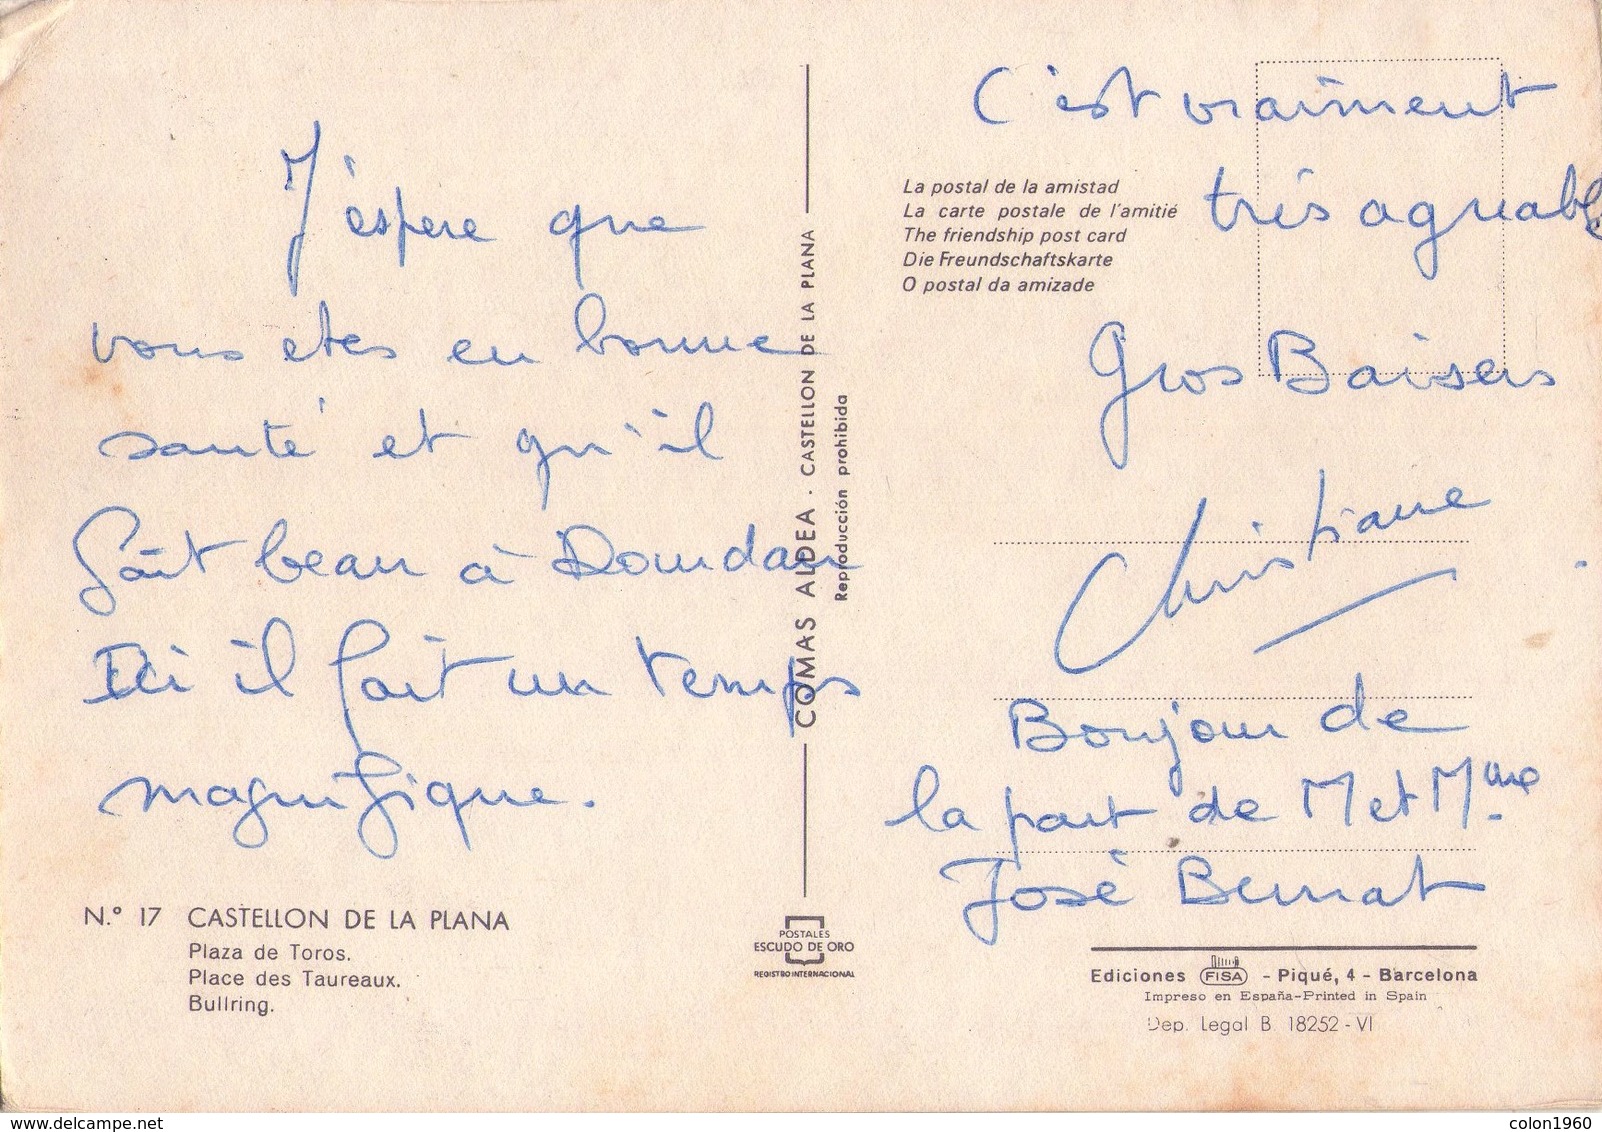 J'espere que
vous etes en bonne
santé et qu'il
fait beau à Dourdan
Ici il fait un temps
magnifique.
N.º 17 CASTELLON DE LA PLANA
Plaza de Toros.
Place des Taureaux.
Bullring.
COMAS ALDEA · CASTELLON DE LA PLANA
Reproducción prohibida
POSTALES
ESCUDO DE ORO
REGISTRO INTERNACIONAL
C'est vraiment
très agreable
La postal de la amistad
La carte postale de l'amitié
The friendship post card
Die Freundschaftskarte
O postal da amizade
Gros Baisers
Christiane
Bonjour de
la part de M et Mme
José Bernat
Ediciones FISA - Piqué, 4 - Barcelona
Impreso en España-Printed in Spain
Dep. Legal B. 18252 - VI
www.delcampe.net
colon1960